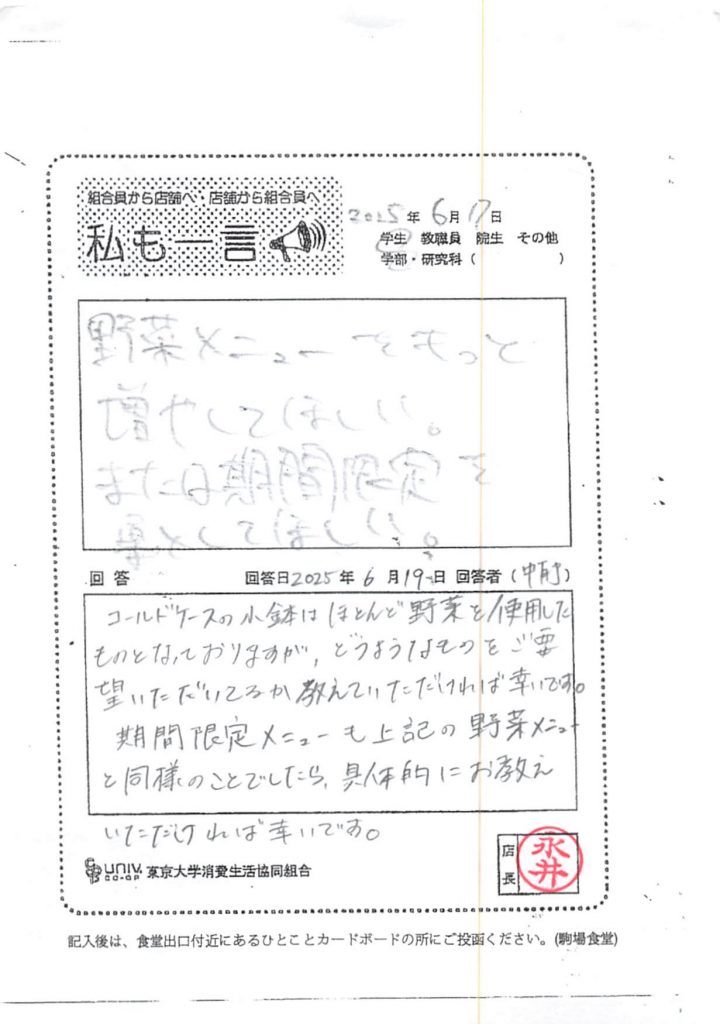 組合員から店舗へ・店舗から組合員へ
私も一言
2025年6月17日
学生 教職員 院生 その他
学部・研究科（ ）
野菜メニューをもっと
増やしてほしい。
または期間限定を
としてほしい。
回答 回答日2025年6月19日 回答者（中村）
コールドケースの小鉢はほとんど野菜を使用した
ものとなっておりますが、どうようなものをご要
望いただいてるか教えていただければ幸いです。
期間限定メニューも上記の野菜メニュー
と同様のことでしたら、具体的にお教え
いただければ幸いです。
UNIV. CO-OP 東京大学消費生活協同組合
店長 永井
記入後は、食堂出口付近にあるひとことカードボードの所にご投函ください。(駒場食堂)